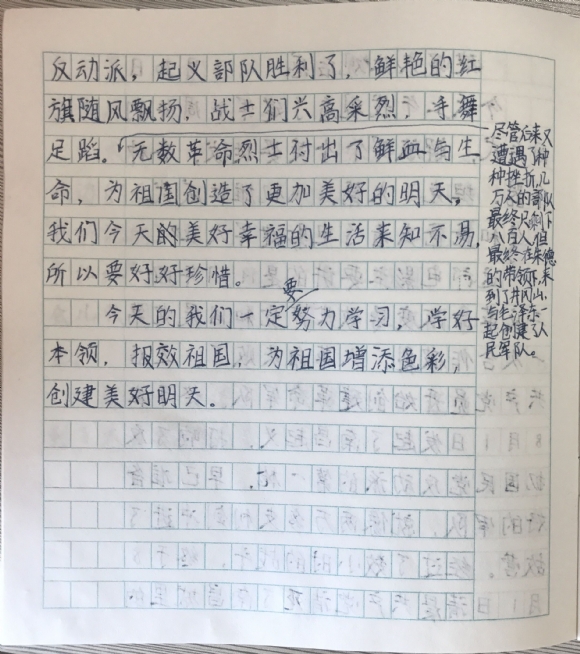 反动派，起义部队胜利了，鲜艳的红
旗随风飘扬，战士们兴高采烈，手舞
足蹈。无数革命烈士付出了鲜血与生
命，为祖国创造了更加美好的明天。
我们今天的美好幸福的生活来知不易，
所以要好好珍惜。
要
今天的我们一定努力学习，学好
本领，报效祖国，为祖国增添色彩，
创建美好明天。
尽管后来又
遭遇了种
种挫折，几
万人的部队
最终只剩下
八百人，但
最终在朱德
的带领下，来
到了井冈山，
与毛泽东一
起创建了人
民军队。